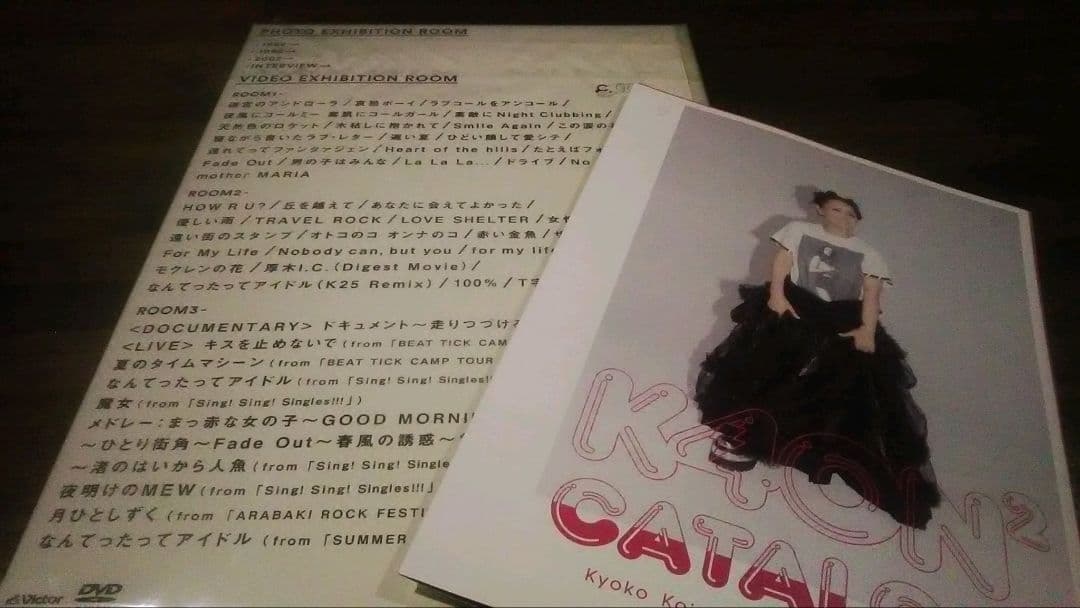 PHOTO EXHIBITION ROOM
-1982→
-2002→
-INTERVIEW→
VIDEO EXHIBITION ROOM
ROOM1-
迷宮のアンドローラ/哀愁ボーイ/ラブコールをアンコール/
夜風にコールミー 素肌にコールガール/素敵にNight Clubbing/
天然色のロケット/木枯しに抱かれて/Smile Again/この涙の
寝ながら書いたラブ・レター/遅い夏/ひどい顔して愛シテ/
連れてってファンタァジェン/Heart of the hills/たとえばフォ
Fade Out/男の子はみんな/La La La.../ドライブ/No
mother MARIA
ROOM2-
HOW R U?/丘を越えて/あなたに会えてよかった/
優しい雨/TRAVEL ROCK/LOVE SHELTER/女性
遠い街のスタンプ/オトコのコ オンナのコ/赤い金魚/
For My Life/Nobody can, but you/for my life
モクレンの花/厚木I.C.(Digest Movie)/
なんてったってアイドル(K25 Remix)/100%/T字
ROOM3-
<DOCUMENTARY> ドキュメント〜走りつづける
<LIVE> キスを止めないで(from「BEAT TICK CAM
夏のタイムマシーン(from「BEAT TICK CAMP TOUR
なんてったってアイドル(from「Sing! Sing! Singles!!
魔女(from「Sing! Sing! Singles!!!」)
メドレー:まっ赤な女の子〜GOOD MORNI
〜ひとり街角〜Fade Out〜春風の誘惑〜
〜渚のはいから人魚(from「Sing! Sing! Single
夜明けのMEW(from「Sing! Sing! Singles!!!」
月ひとしずく(from「ARABAKI ROCK FESTI
なんてったってアイドル(from「SUMMER
Victor
DVD
K4ON²
CATALO
Kyoko Koi